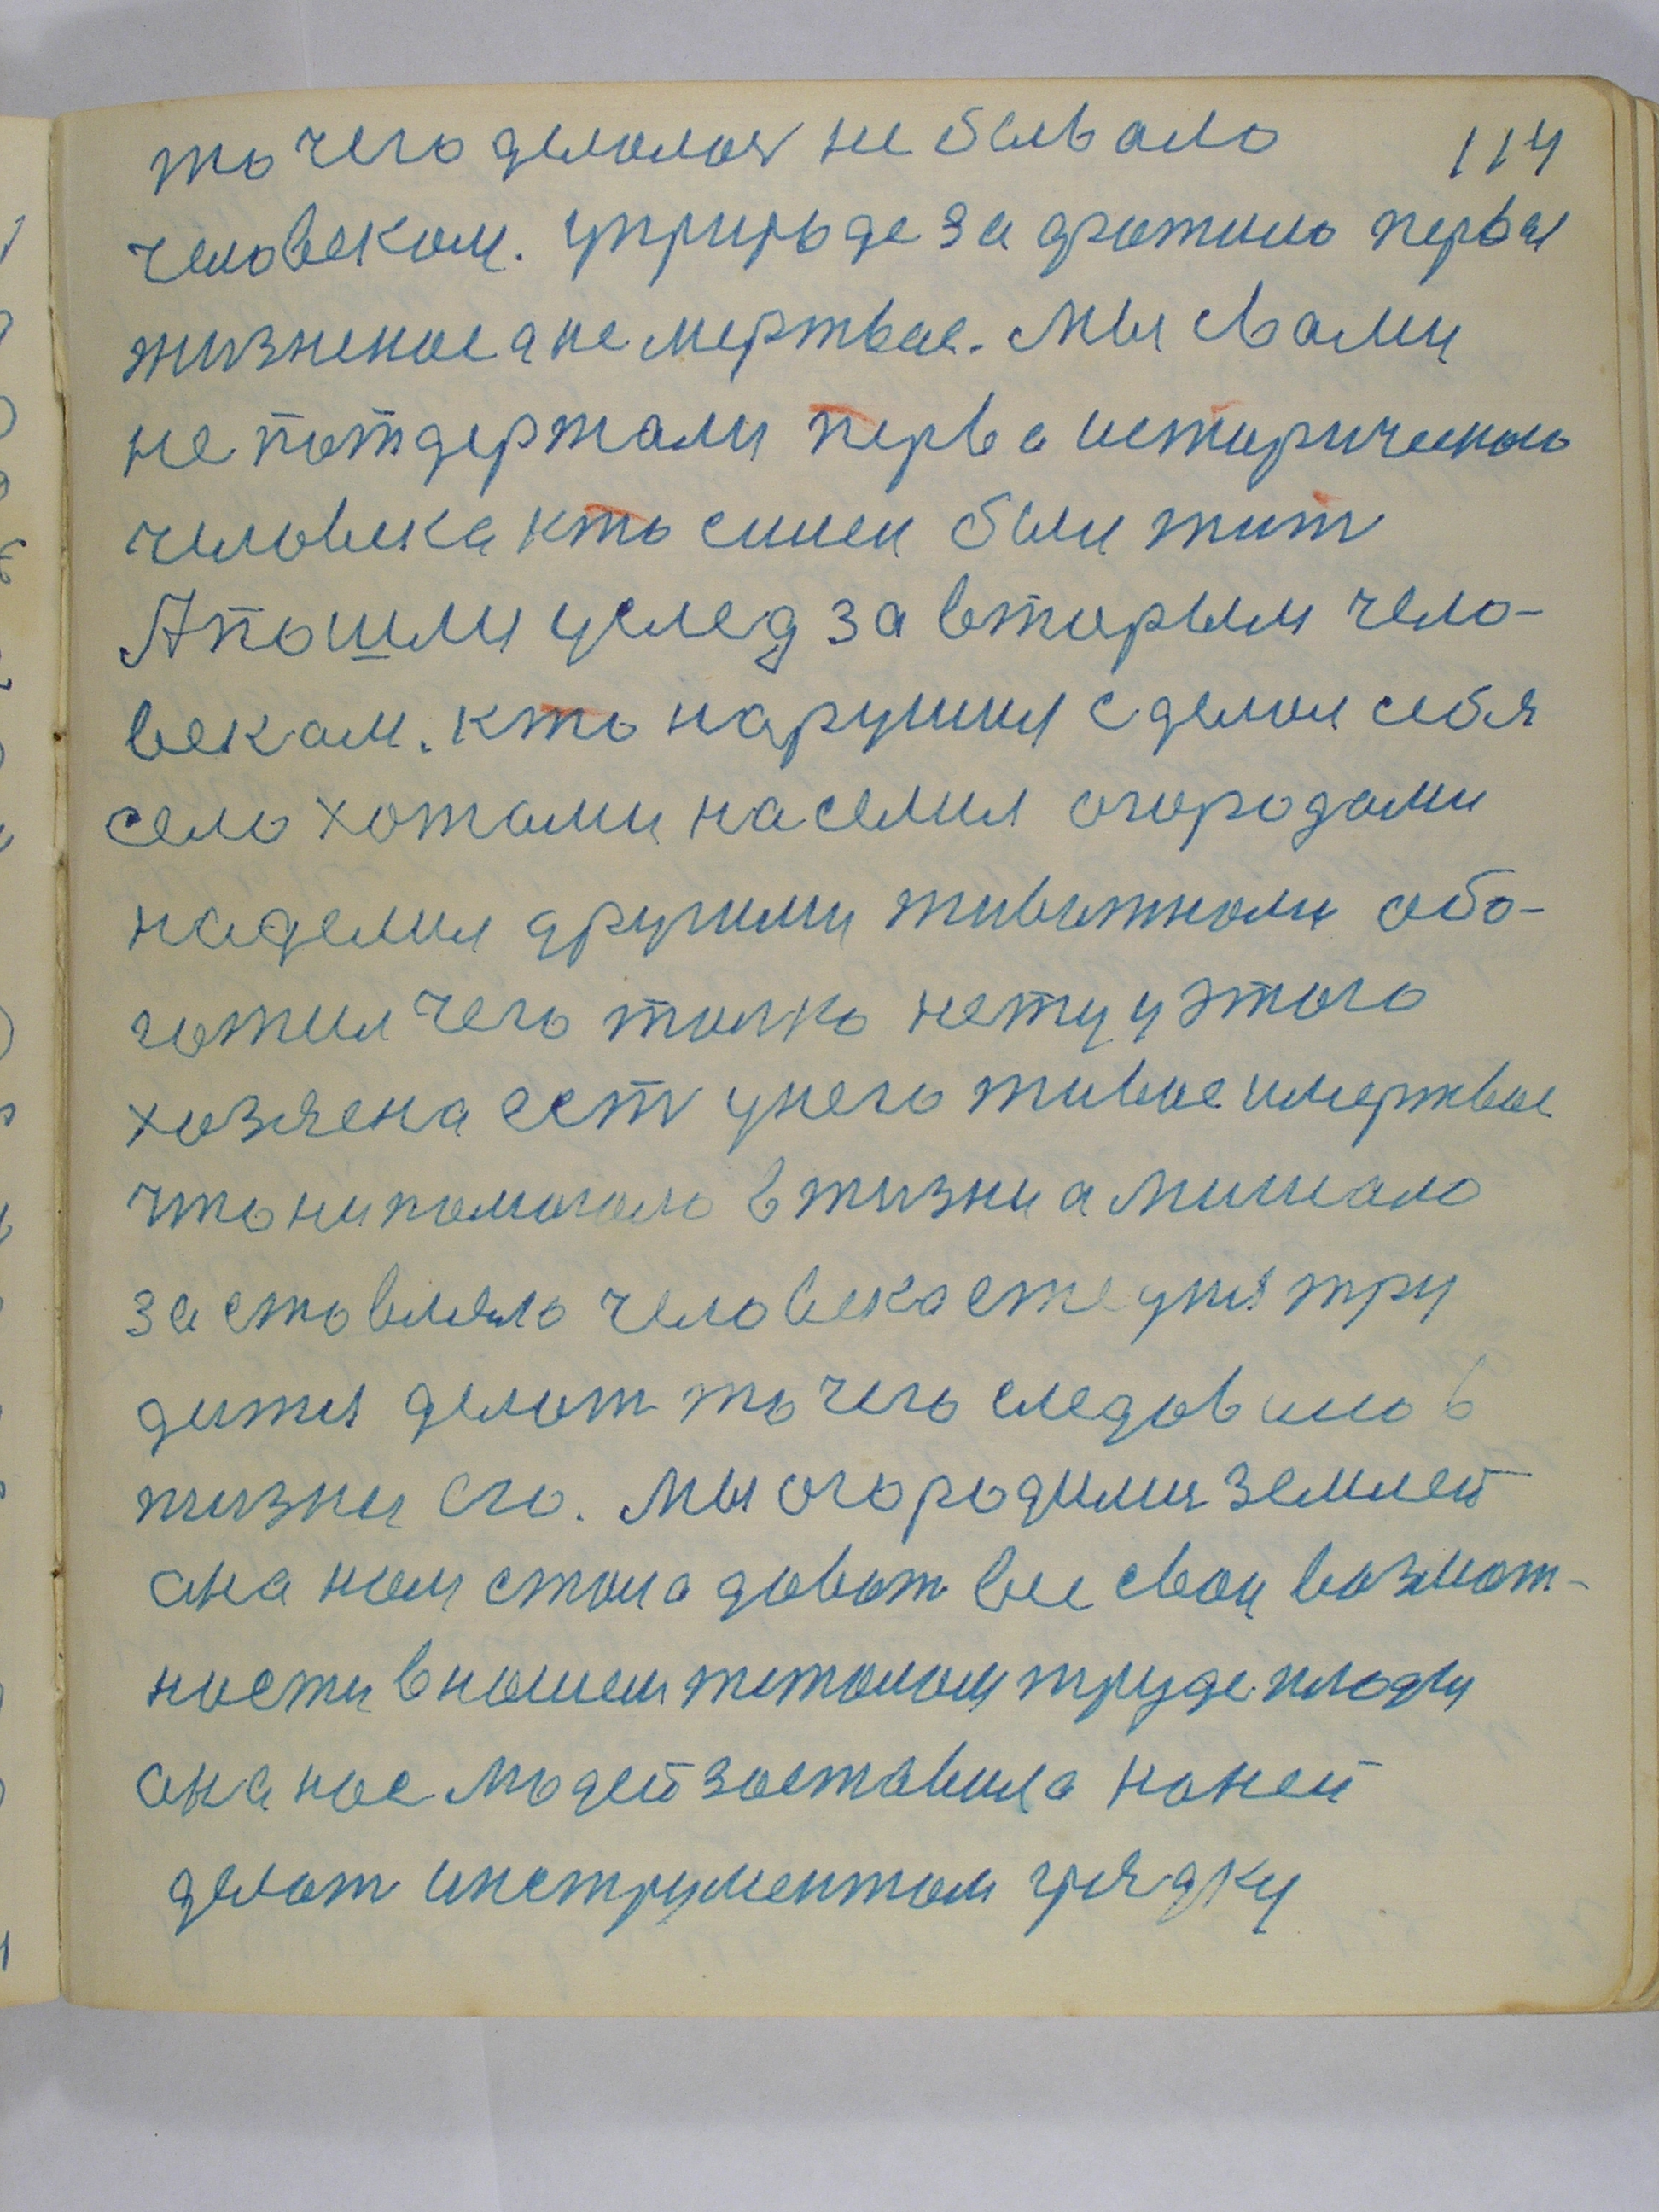 то чего делалоя не бывало 114
человеком. уприроде за братило первая
жизненое а не мертвае. Мы свами
не потдержали перва историческаю
человека кто снеи были жит
А пошли услед за вторым чело-
векам. кто нарушил сделал себя
село хотами населил огородами
наделил другими животнами обо-
готил чего толко нету у этого
хозяена ест унего живое имертвое
что непомогало в жизни а мишало
заставляло человека стеупя тру
дится делат то чего следовало в
жизни его. Мы огородилия землей
ана нам стала давот все свои возмож-
насти внашем жеталом труде плоды
ана нас людей заставила наней
делат инструментом грядку